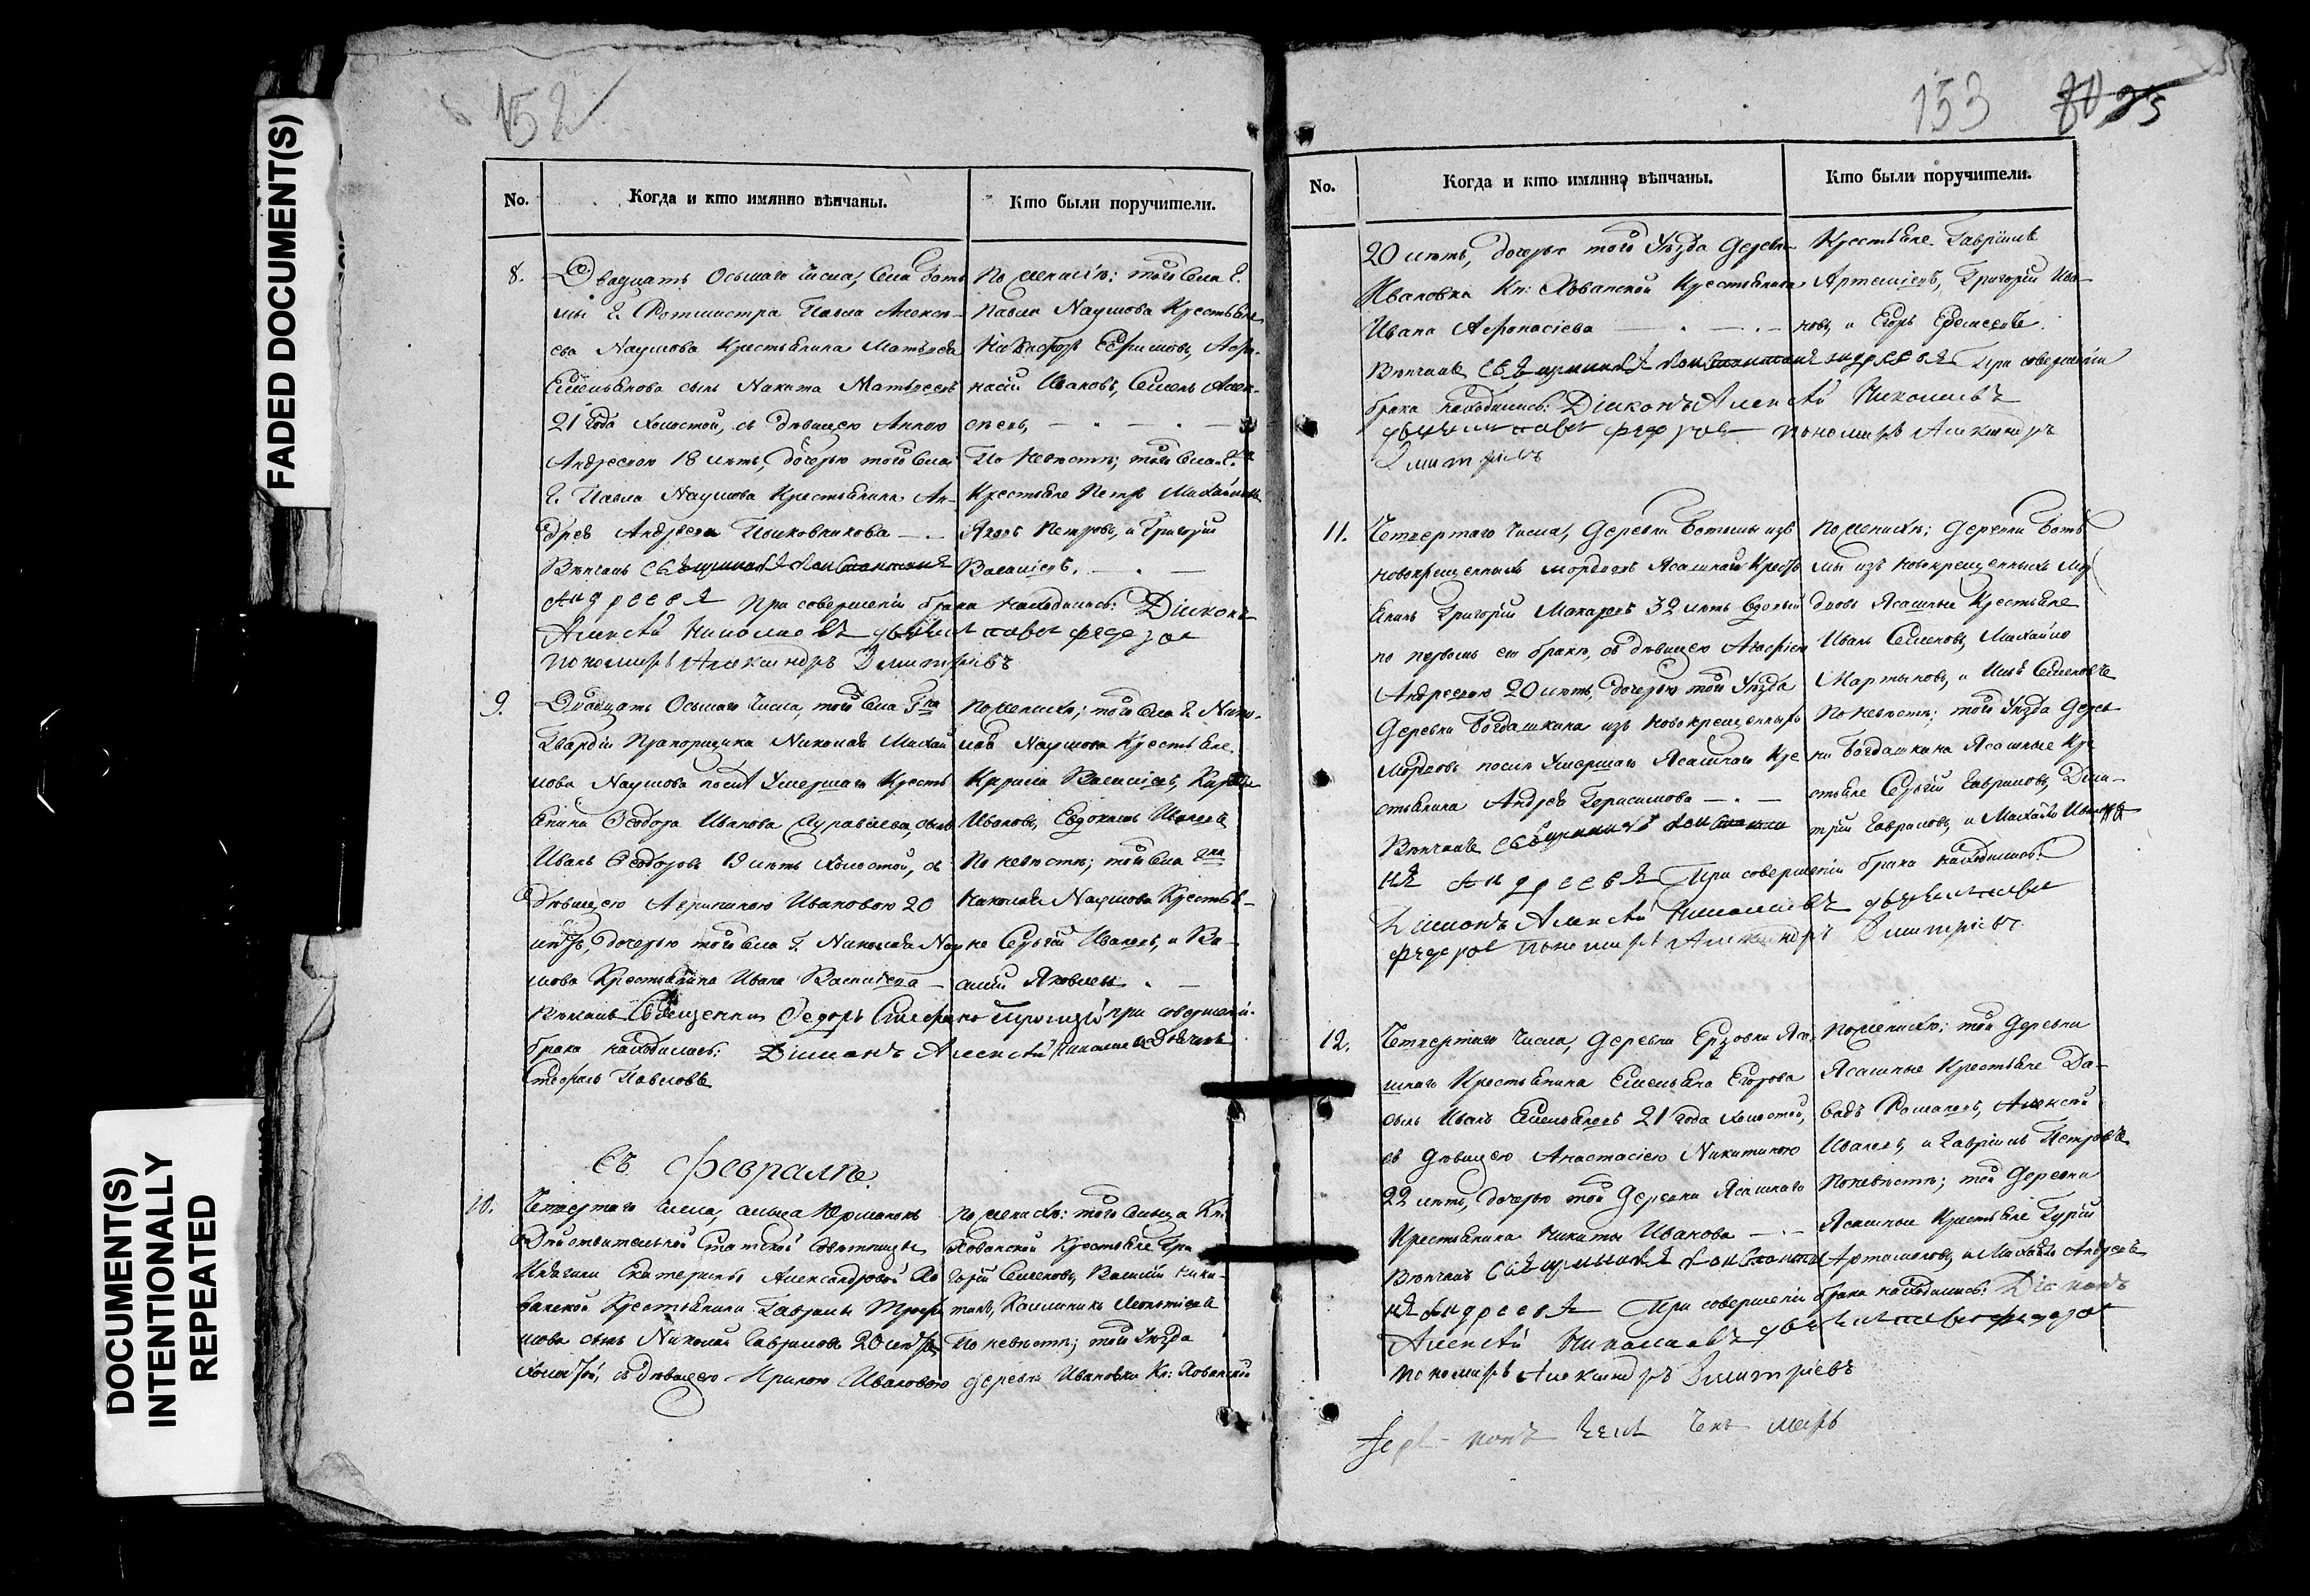 FADED DOCUMENT(S)
DOCUMENT(S)
INTENTIONALLY
REPEATED
152
No.
Когда и кто имянно вѣнчаны.
Кто были поручители.
8.
Двадцать Осьмаго числа, села Боть
мы Г. Ротмистра Павла Алексѣ
ева Наумова Крестьянина Матвѣя
Емельянова сынъ Никита Матвѣевъ
21 Года холостой, съ дѣвицею Анною
Андреевою 18 лѣтъ, дочерью того села
Г. Павла Наумова Крестьянина Ан-
дрея Андреева
Вѣнчалъ Священникъ Константинъ
Андреевъ При совершеніи брака находились: Діяконъ
Алексѣй Николаевъ дьячекъ Павелъ Федоровъ
пономарь Александръ Дмитріевъ
По женихѣ: того села Г.
Павла Наумова Крестьяне
Никифоръ Ефимовъ, Афо-
насій Ивановъ, Семенъ Алек-
сѣевъ,
По невѣстѣ; того села Г.
Крестьяне Петръ Михайловъ
Яковъ Петровъ, и Григорій
Васильевъ.
9.
Двадцать Осьмаго числа, того села Г-на
Гвардіи Прапорщика Николая Михай
лова Наумова послѣ Умершаго Кресть
янина Феодора Иванова сынъ
Иванъ Феодоровъ 19 лѣтъ холостой, съ
дѣвицею Ивановою 20
лѣтъ, дочерью того села Г. Николая Нау
мова Крестьянина Ивана Васильева
Вѣнчалъ Священникъ Федоръ при совершеніи
брака находились: Діяконъ Алексѣй Николаевъ Дьячекъ
Стефанъ Павловъ
По женихѣ; того села Г. Нико-
лая Наумова Крестьяне
Кирила Васильевъ,
Ивановъ, Евдокимъ Ивановъ
По невѣстѣ; того села Г-на
Николая Наумова Крестья-
не Сергѣй Ивановъ, и Ва-
силій Яковлевъ
Въ февралѣ.
10.
Четвертаго числа, сельца
Дѣйствительной Статской Совѣтницы
Княгини Екатерины Александровой Хо
ванской Крестьянина Гаврилы Трофи
мова сынъ Николай Гавриловъ 20 лѣтъ
холостой, съ дѣвицею Ириною Ивановою
По женихѣ: того сельца Кн:
Хованской Крестьяне Гри
горій Семеновъ, Василій Ники-
тинъ, Калинникъ Леонтіевъ
По невѣстѣ; того Уѣзда
деревни Ивановки Кн: Хованской
153
No.
Когда и кто имянно вѣнчаны.
Кто были поручители.
20 лѣтъ, дочерью того Уѣзда деревни
Ивановки Кн: Хованской Крестьянина
Ивана Афонасіева
Вѣнчалъ Священникъ Константинъ Андреевъ При совершеніи
брака находились: Діяконъ Алексѣй Николаевъ
дьячекъ Павелъ Федоровъ пономарь Александръ
Дмитріевъ
Крестьяне Гаврила
Артемьевъ, Григорій Ива-
новъ, и Егоръ
11.
Четвертаго числа, Деревни Ботьмы изъ
новокрещенныхъ мордвовъ Ясашной Кресть
янинъ Григорій Макаровъ 32 лѣтъ вдовый
по первомъ его бракѣ, съ дѣвицею Агафіею
Андреевою 20 лѣтъ, дочерью того Уѣзда
Деревни Богдашкина изъ новокрещенныхъ
Мордвовъ послѣ Умершаго Ясашнаго Кре
стьянина Андрея Герасимова
Вѣнчалъ Священникъ Константи
нъ Андреевъ При совершеніи брака находились:
Діяконъ Алексѣй Николаевъ дьячекъ Павелъ
Федоровъ пономарь Александръ Дмитріевъ
По женихѣ; деревни Боть
мы изъ новокрещенныхъ мор
двовъ Ясашные Крестьяне
Иванъ Семеновъ, Михайло
Мартыновъ, и Илья Семеновъ
По невѣстѣ; того Уѣзда дерев
ни Богдашкина Ясашные Кре
стьяне Сергѣй Гавриловъ, Дми-
трій Гавриловъ, и Михайло Ивановъ
12.
Четвертаго числа, Деревни Ерзовки Яса
шнаго Крестьянина Емельяна Егорова
сынъ Иванъ Емельяновъ 21 года холостой,
съ дѣвицею Анастасіею Никитиною
22 лѣтъ, дочерью той Деревни Ясашнаго
Крестьянина Никиты Иванова
Вѣнчалъ Священникъ Константи
нъ Андреевъ При совершеніи брака находились: Діяконъ
Алексѣй Николаевъ дьячекъ Павелъ Федоровъ
пономарь Александръ Дмитріевъ
По женихѣ; той Деревни
Ясашные Крестьяне Да-
выдъ Романовъ, Алексѣй
Ивановъ, и Гаврила Петровъ
По невѣстѣ; той Деревни
Ясашные Крестьяне Гурій
Артамоновъ, и Михайло Андреевъ